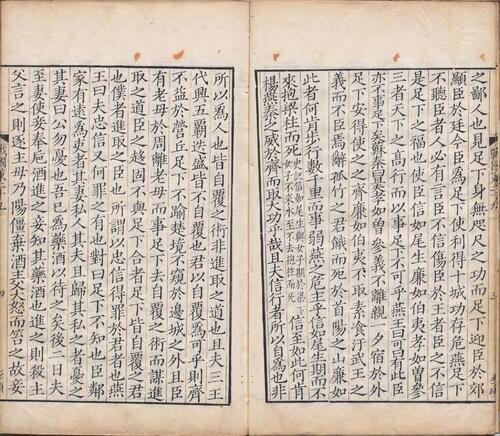 之鄙人也見足下身無咫尺之功而足下迎臣於郊
顯臣於廷今臣爲足下使利得十城功存危燕足下
不聽臣者人必有言臣不信傷臣於王者臣之不信
是足下之福也使臣信如尾生廉如伯夷孝如曾參
三者天下之高行而以事足下不可乎燕王曰可曰有此臣
亦不事足下矣蘇秦曰且夫孝如曾參義不離親一夕宿於外
足下安得使之之齊廉如伯夷不取素飡汙武王之
義而不臣焉辭孤竹之君餓而死於首陽之山廉如
此者何肯步行數千里而事弱燕之危主乎信如尾生期而不
來抱梁柱而死史記信如尾生與女子期於梁下女子不來水至不去抱柱而死信至如此何肯
楊燕秦之威於齊而取大功乎哉且夫信行者所以自爲也非
所以爲人也皆自覆之術非進取之道也且夫三王
代興五霸迭盛皆不自覆也君以自覆爲可乎則齊
不益於營丘足下不踰楚境不窺於邊城之外且臣
有老母於周離老母而事足下去自覆之術而謀進
取之道臣之趨固不與足下合者足下皆自覆之君
也僕者進取之臣也所謂以忠信得罪於君者也燕
王曰夫忠信又何罪之有也對曰足下不知也臣鄰
家有遠爲吏者其妻私人其夫且歸其私之者憂之
其妻曰公勿憂也吾已爲藥酒以待之矣後二日夫
至妻使妾奉卮酒進之妾知其藥酒也進之則殺主
父言之則逐主母乃陽僵棄酒主父大怒而笞之故妾